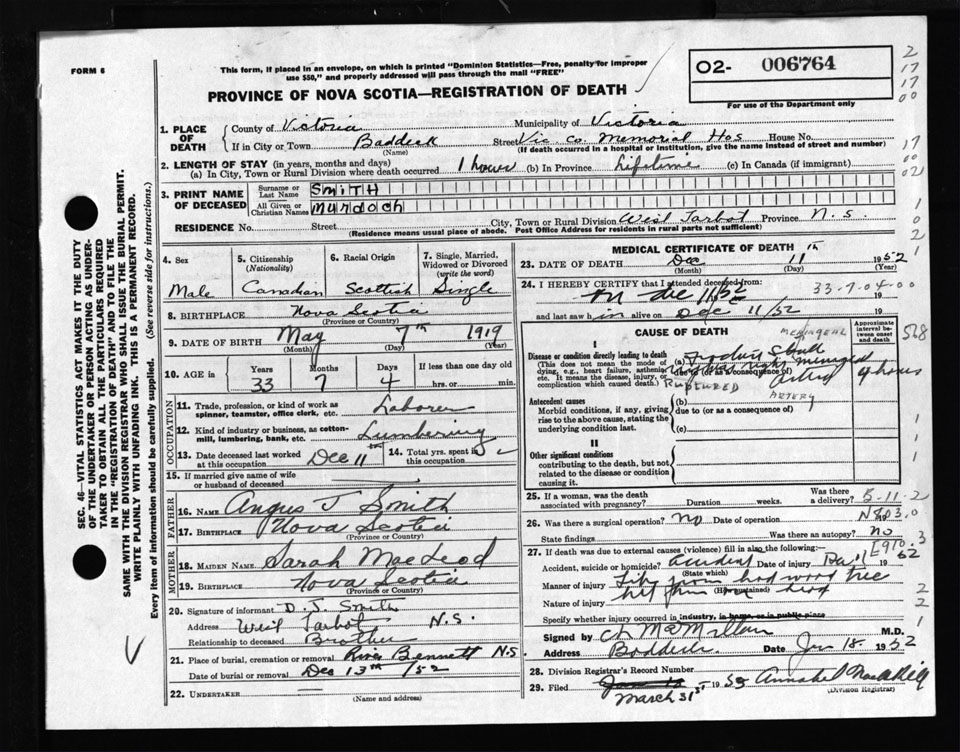 FORM 6
This form, if placed in an envelope, on which is printed "Dominion Statistics—Free, penalty for improper
use $50," and properly addressed will pass through the mail "FREE"
02- 006764
For use of the Department only
PROVINCE OF NOVA SCOTIA—REGISTRATION OF DEATH
1. PLACE OF DEATH
County of Victoria Municipality of Victoria
If in City or Town Baddeck Street Vic. Co. Memorial Hos House No.
(Name) (If death occurred in a hospital or institution, give the name instead of street and number)
2. LENGTH OF STAY (in years, months and days)
(a) In City, Town or Rural Division where death occurred 1 hour (b) In Province Lifetime (c) In Canada (if immigrant)
3. PRINT NAME OF DECEASED
Surname or Last Name SMITH
All Given or Christian Names Murdoch
RESIDENCE No. Street City, Town or Rural Division West Tarbot Province N.S.
(Residence means usual place of abode. Post Office Address for residents in rural parts not sufficient)
4. Sex Male
5. Citizenship (Nationality) Canadian
6. Racial Origin Scottish
7. Single, Married, Widowed or Divorced (write the word) Single
8. BIRTHPLACE Nova Scotia
(Province or Country)
9. DATE OF BIRTH May 7th 1919
(Month) (Day) (Year)
10. AGE in Years Months Days If less than one day old
33 7 4 hrs. or min.
OCCUPATION
11. Trade, profession, or kind of work as spinner, teamster, office clerk, etc. Laborer
12. Kind of industry or business, as cotton-mill, lumbering, bank, etc. Lumbering
13. Date deceased last worked at this occupation Dec 11th
14. Total yrs. spent in this occupation
15. If married give name of wife or husband of deceased
FATHER
16. NAME Angus J Smith
17. BIRTHPLACE Nova Scotia
(Province or Country)
MOTHER
18. MAIDEN NAME Sarah MacLeod
19. BIRTHPLACE Nova Scotia
(Province or Country)
20. Signature of informant D. J. Smith
Address West Tarbot N.S.
Relationship to deceased Brother
21. Place of burial, cremation or removal River Bennett N.S
Date of burial or removal Dec 13th /52
22. UNDERTAKER
(Name and address)
MEDICAL CERTIFICATE OF DEATH
23. DATE OF DEATH Dec 11 1952
(Month) (Day) (Year)
24. I HEREBY CERTIFY that I attended deceased from: 33-7-04-00
on Dec 11/52 19
and last saw h im alive on Dec 11/52 19
CAUSE OF DEATH
Approximate interval between onset and death
I
Disease or condition directly leading to death
(This does not mean the mode of dying, e.g., heart failure, asthenia, etc. It means the disease, injury, or complication which caused death.)
(a) Skull
due to (or as a consequence of)
MENINGEAL
RUPTURED ARTERY
4 hours
Antecedent causes
Morbid conditions, if any, giving rise to the above cause, stating the underlying condition last.
(b)
due to (or as a consequence of)
(c)
II
Other significant conditions
contributing to the death, but not related to the disease or condition causing it
25. If a woman, was the death associated with pregnancy? Duration weeks. Was there a delivery? 5-11-2
26. Was there a surgical operation? No Date of operation
State findings Was there an autopsy? no
27. If death was due to external causes (violence) fill in also the following:—
Accident, suicide or homicide? accident Date of injury Dec 11 1952
(State which)
Manner of injury from hard wood tree
Nature of injury
Specify whether injury occurred in industry, in home, or in public place
Signed by C. L. MacMillan M.D.
Address Baddeck Date Jan 18 1952
28. Division Registrar's Record Number
29. Filed March 31st 1953
(Division Registrar)
SEC. 46—VITAL STATISTICS ACT MAKES IT THE DUTY
OF THE UNDERTAKER OR PERSON ACTING AS UNDER-
TAKER TO OBTAIN ALL THE PARTICULARS REQUIRED
IN THE "REGISTRATION OF DEATH" AND TO FILE THE
SAME WITH THE DIVISION REGISTRAR WHO SHALL ISSUE THE BURIAL PERMIT.
WRITE PLAINLY WITH UNFADING INK. THIS IS A PERMANENT RECORD.
Every item of information should be carefully supplied. (See reverse side for instructions.)